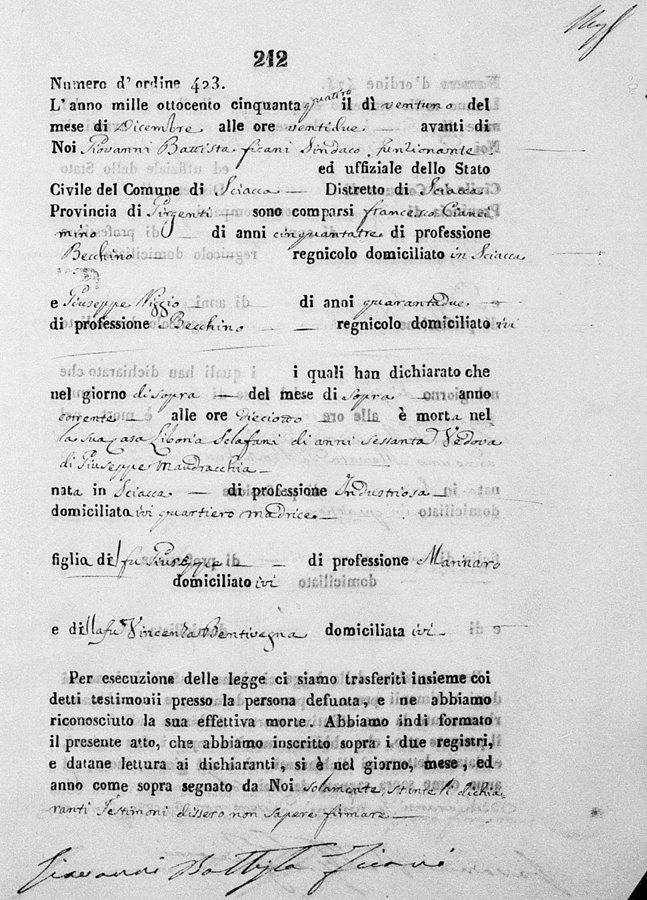 212
Numero d'ordine 423.
L'anno mille ottocento cinquanta quattro il dì ventuno del
mese di Dicembre alle ore ventidue — avanti di
Noi Giovanni Battista Ficani Sindaco funzionante
ed uffiziale dello Stato
Civile del Comune di Sciacca — Distretto di Sciacca
Provincia di Girgenti — sono comparsi Francesco Cianci
mino — di anni cinquantatre di professione
Becchino — regnicolo domiciliato in Sciacca
e Giuseppe Niggio — di anni quarantadue —
di professione Becchino — regnicolo domiciliato ivi
i quali han dichiarato che
nel giorno di sopra — del mese di sopra — anno
corrente — alle ore dicciotto — è morta nel
la sua Casa Liboria Sclafani di anni sessanta Vedova
di Giuseppe Maudracchia —
nata in Sciacca — di professione Industriosa —
domiciliata ivi quartiero Madrice —
figlia di fu Giuseppe — di professione Mannaro
domiciliato ivi
e di lla fu Vincenza Bentivegna domiciliata ivi —
Per esecuzione delle legge ci siamo trasferiti insieme coi
detti testimonii presso la persona defunta, e ne abbiamo
riconosciuto la sua effettiva morte. Abbiamo indi formato
il presente atto, che abbiamo inscritto sopra i due registri,
e datane lettura ai dichiaranti, si è nel giorno, mese, ed
anno come sopra segnato da Noi solamente, stante li dichia
ranti Testimoni dissero non sapere firmare —
Giovanni Battista Ficani